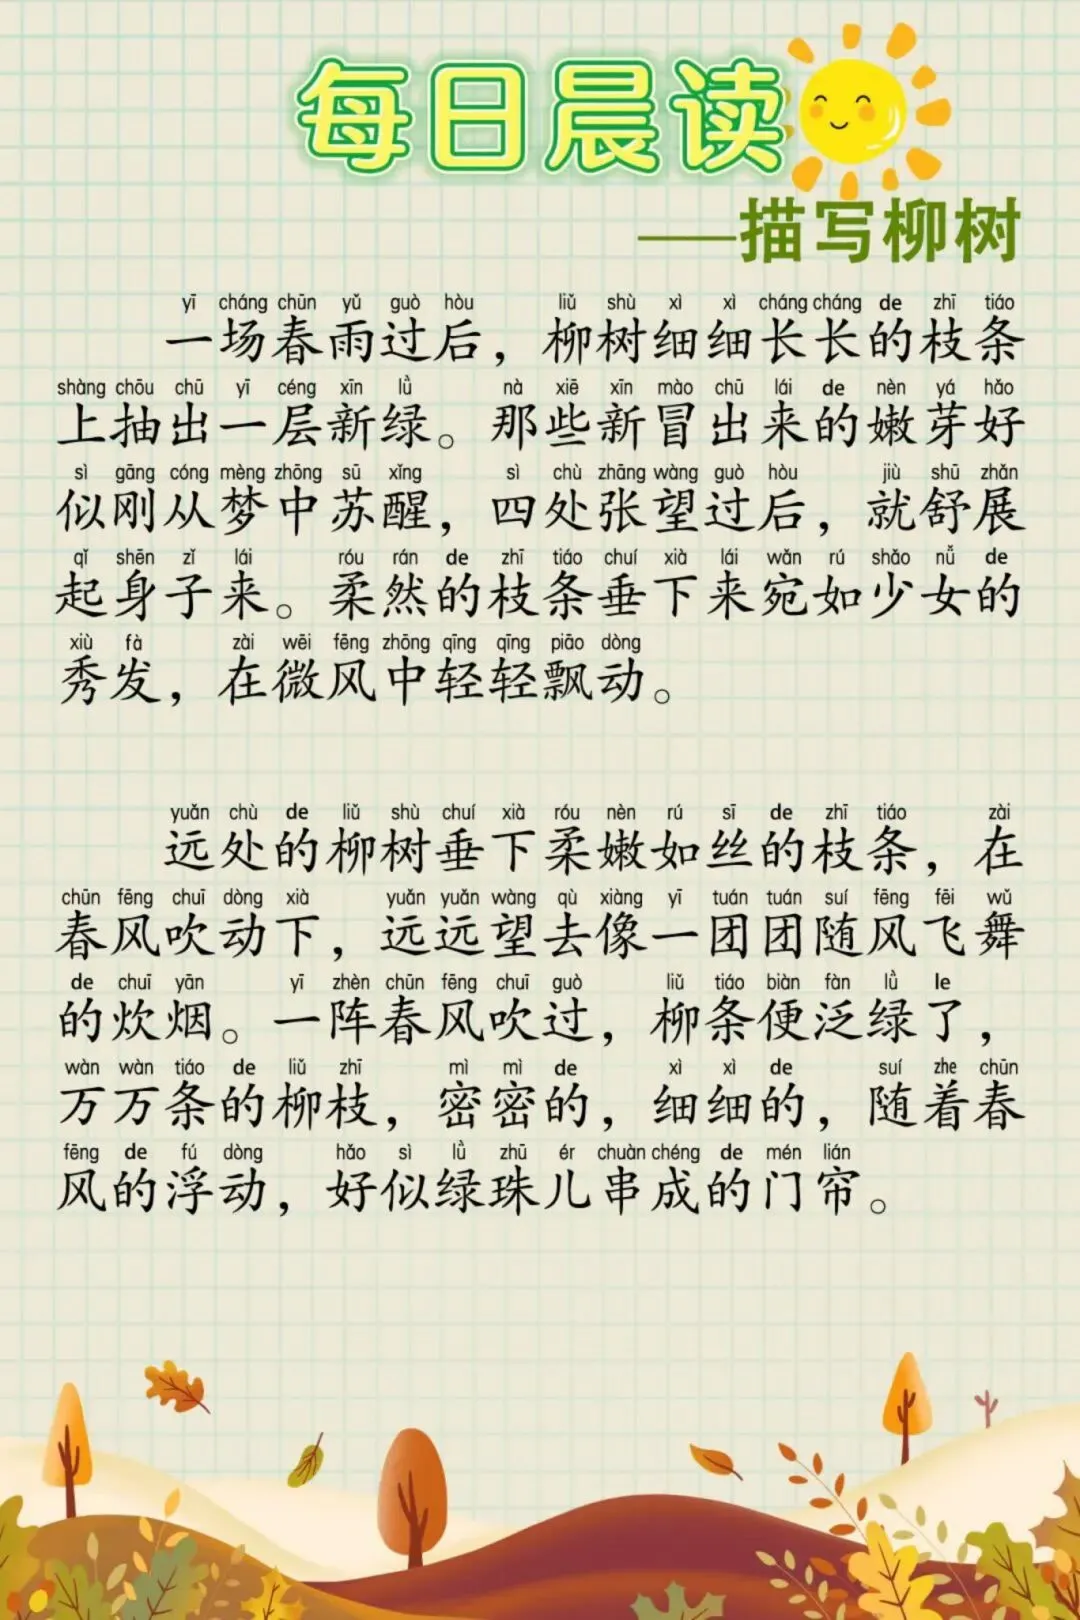 每日晨读
——描写柳树
yī cháng chūn yǔ guò hòu liǔ shù xì xì cháng cháng de zhī tiáo
一场春雨过后，柳树细细长长的枝条
shàng chōu chū yī céng xīn lǜ nà xiē xīn mào chū lái de nèn yá hǎo
上抽出一层新绿。那些新冒出来的嫩芽好
sì gāng cóng mèng zhōng sū xǐng sì chù zhāng wàng guò hòu jiù shū zhǎn
似刚从梦中苏醒，四处张望过后，就舒展
qǐ shēn zǐ lái róu rán de zhī tiáo chuí xià lái wǎn rú shǎo nǚ de
起身子来。柔然的枝条垂下来宛如少女的
xiù fà zài wēi fēng zhōng qīng qīng piāo dòng
秀发，在微风中轻轻飘动。
yuǎn chù de liǔ shù chuí xià róu nèn rú sī de zhī tiáo zài
远处的柳树垂下柔嫩如丝的枝条，在
chūn fēng chuī dòng xià yuǎn yuǎn wàng qù xiàng yī tuán tuán suí fēng fēi wǔ
春风吹动下，远远望去像一团团随风飞舞
de chuī yān yī zhèn chūn fēng chuī guò liǔ tiáo biàn fàn lǜ le
的炊烟。一阵春风吹过，柳条便泛绿了，
wàn wàn tiáo de liǔ zhī mì mì de xì xì de suí zhe chūn
万万条的柳枝，密密的，细细的，随着春
fēng de fú dòng hǎo sì lǜ zhū ér chuàn chéng de mén lián
风的浮动，好似绿珠儿串成的门帘。